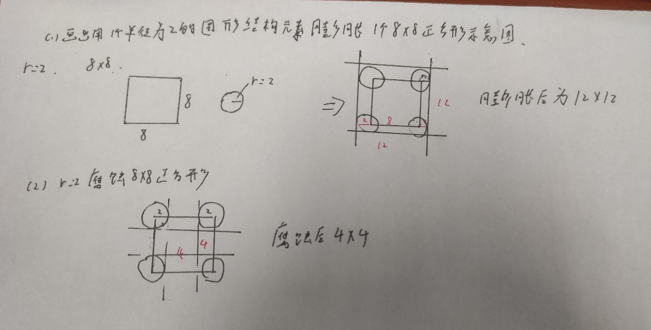 (1) 画出用1个半径为2的圆形结构元素膨胀1个8×8正方形示意图.
r=2. 8×8.
8
8
r=2
⇒
2
2
8
12
12
膨胀后为12×12
(2) r=2 腐蚀8×8正方形
2
2
4
4
腐蚀后4×4